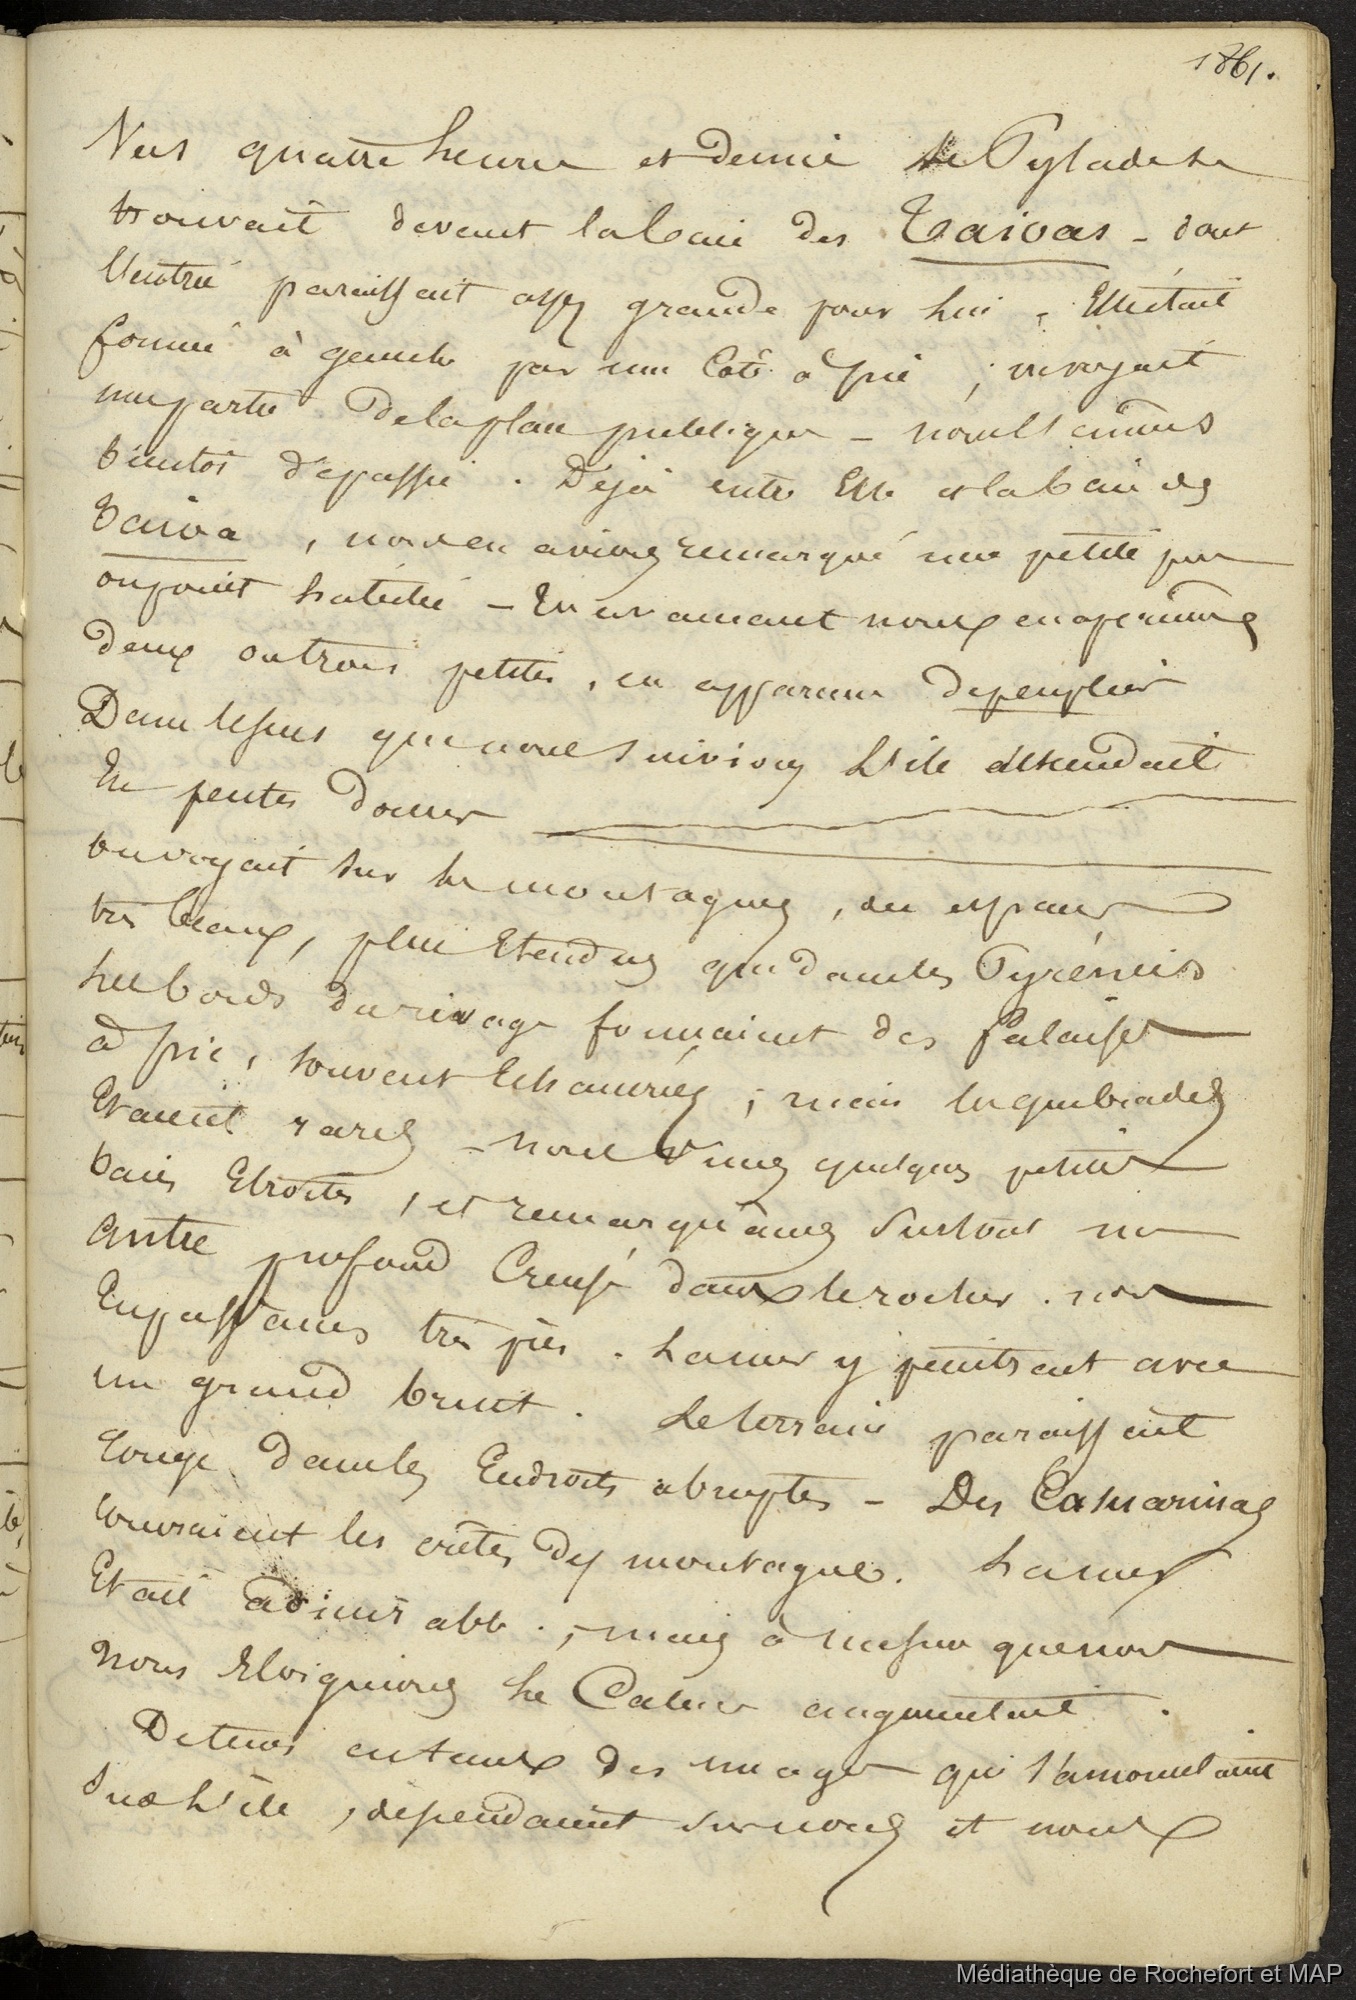 1861.
Vers quatre heures et demie le Pylade se
trouvait devant la baie des Taivas - dont
l'entrée paraissait assez grande pour lui . Elle était
formée à gauche par une Côte à pic ; on voyait
une partie de la place publique - nous l'eumes
bientot dépassée . Déjà entre Elle et la baie des
Taiva , nous en avions remarqué une petite peu
ou point habitée - En avancant nous en aperçumes
deux ou trois petites , en apparence dépeuplées
Dans le sens que nous suivions L'ile descendait
En pentes douces
on voyait sur les montagnes , des espaces
très beaux , plus Etendus que dans les Pyrénnées
les bords du rivage formaient des falaises
à pic , souvent Echancrées ; mais les
Etaient rares - nous vimes quelques petites
baies Etroites , et remarquâmes surtout un
antre profond Creusé dans le rocher . nous
En passâmes très près . La mer y pénétrait avec
un grand bruit . Le terrain paraissait
rouge dans les Endroits abruptes - Des Casuarinas
couvraient les crêtes des montagnes . La mer
Etait admirable ; mais à mesure que nous
nous Eloignions le Calme augmentait .
De tems en tems des nuages qui s'amoncelaient
sur L'ile , dépendaient sur nous et nous
Médiathèque de Rochefort et MAP